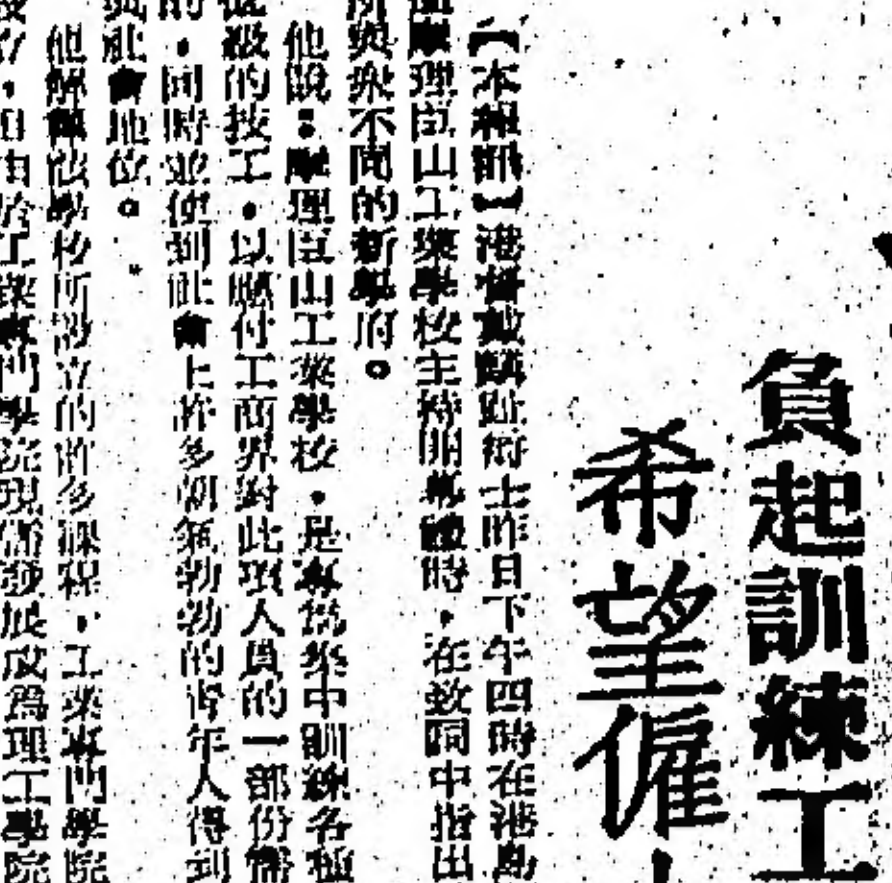 負起訓練工
希望僱
【本報訊】港督戴麟趾爵士昨日下午四時在港島
摩理臣山工業學校主持開幕禮時，在致詞中指出
所與眾不同的新學府。
他說：摩理臣山工業學校，是專為集中訓練各種
級的技工，以應付工商界對此項人員的一部份需
的，同時並使到社會上許多朝氣勃勃的青年人得到
社會地位。
他解釋該學校所設立的許多課程，工業專門學院
，但由於工業專門學院現需發展成為理工學院